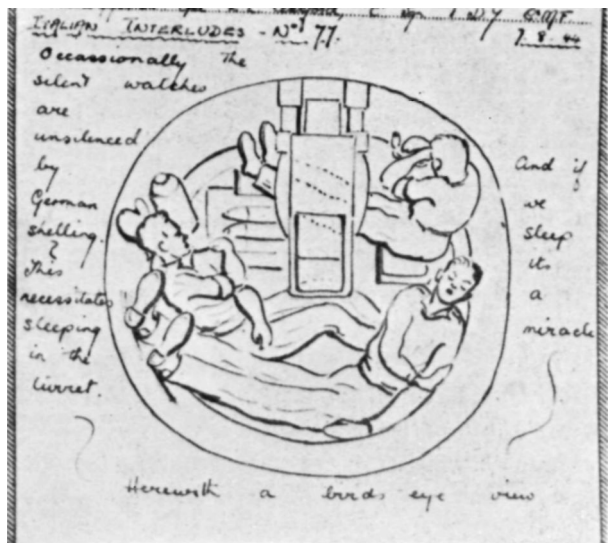 ITALIAN INTERLUDES - No 77.
7.8.44
Occassionally the
silent watches
are
unsilenced
by
German
shelling.
This
necessitates
sleeping
in the
turret
And if
we
sleep
its
a
miracle
Herewith a birds eye view